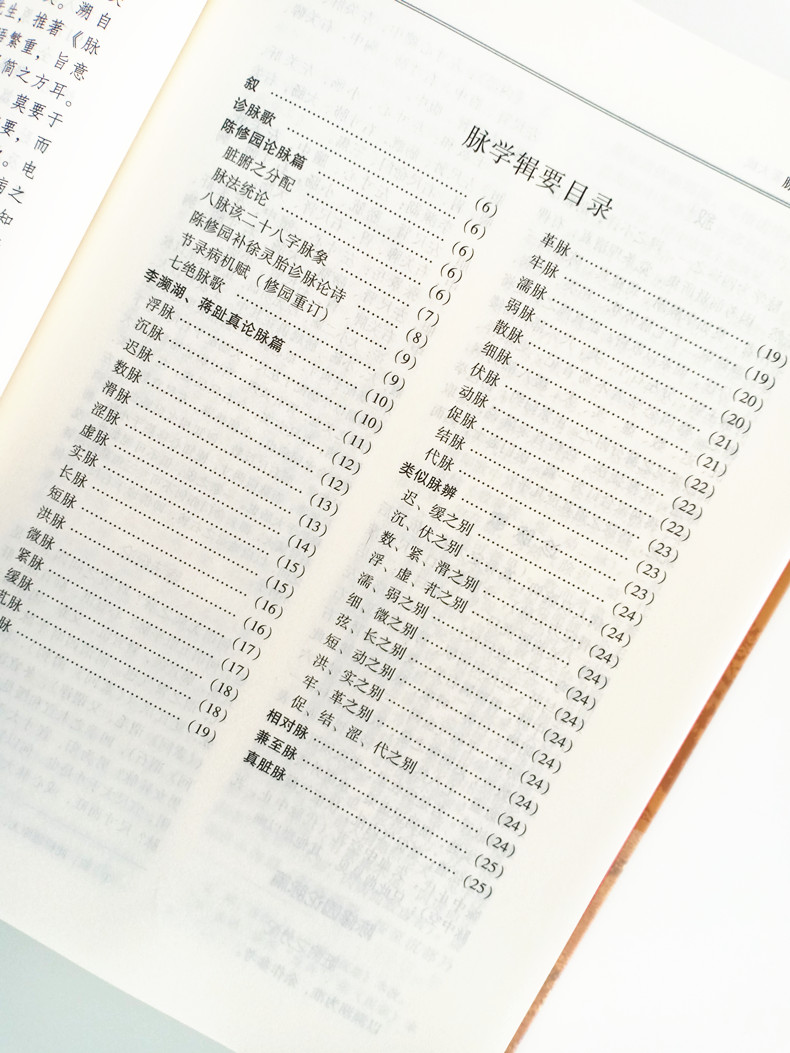 溯自
生，推著《脉
语繁重，旨意
简之方耳。
莫要于
要，而
。电
病之
知
脉学辑要目录
叙 …… (6)
诊脉歌 …… (6)
陈修园论脉篇 …… (6)
脏腑之分配 …… (6)
脉法统论 …… (6)
八脉该二十八字脉象 …… (7)
陈修园补徐灵胎诊脉论诗 …… (8)
节录病机赋（修园重订） …… (9)
七绝脉歌 …… (9)
李濒湖、蒋趾真论脉篇 …… (10)
浮脉 …… (10)
沉脉 …… (11)
迟脉 …… (12)
数脉 …… (12)
滑脉 …… (13)
涩脉 …… (13)
虚脉 …… (14)
实脉 …… (15)
长脉 …… (15)
短脉 …… (16)
洪脉 …… (16)
微脉 …… (17)
紧脉 …… (17)
缓脉 …… (18)
芤脉 …… (18)
脉 …… (19)
革脉 …… (19)
牢脉 …… (19)
濡脉 …… (20)
弱脉 …… (20)
散脉 …… (21)
细脉 …… (21)
伏脉 …… (22)
动脉 …… (22)
促脉 …… (22)
结脉 …… (23)
代脉 …… (23)
类似脉辨 …… (23)
迟、缓之别 …… (24)
沉、伏之别 …… (24)
数、紧、滑之别 …… (24)
浮、虚、芤之别 …… (24)
濡、弱之别 …… (24)
细、微之别 …… (24)
弦、长之别 …… (24)
短、动之别 …… (24)
洪、实之别 …… (24)
牢、革之别 …… (24)
促、结、涩、代之别 …… (24)
相对脉 …… (24)
兼至脉 …… (25)
真脏脉 …… (25)